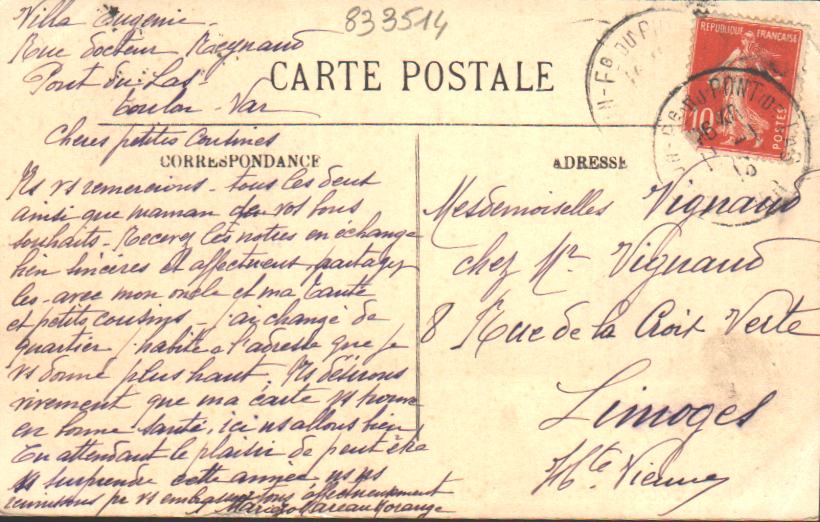 833514
Villa Eugenie
Rue docteur Raynaud
Pont du Las
Toulon - Var
CARTE POSTALE
REPUBLIQUE FRANÇAISE
10
POSTES
PONT DU LAS
Cheres petites Cousines
CORRESPONDANCE
Ns vs remercions - tous les deux
ainsi que maman de vos bons
souhaits - Recevez les notres en échange
bien sincères et affectueux partagez
les - avec mon oncle et ma tante
et petits cousins - j'ai changé de
quartier habite a l'adresse que je
vs donne plus haut. Ns désirons
vivement que ma carte vs trouve
en bonne santé, ici ns allons bien
En attendant le plaisir de peut être
vs surprendre cette année, ns ns
reunissons pr vs embrasser tous affectueusement
ADRESSE
Mesdemoiselles Vignaud
chez Mr Vignaud
8 Rue de la Croix Verte
Limoges
Hte Vienne